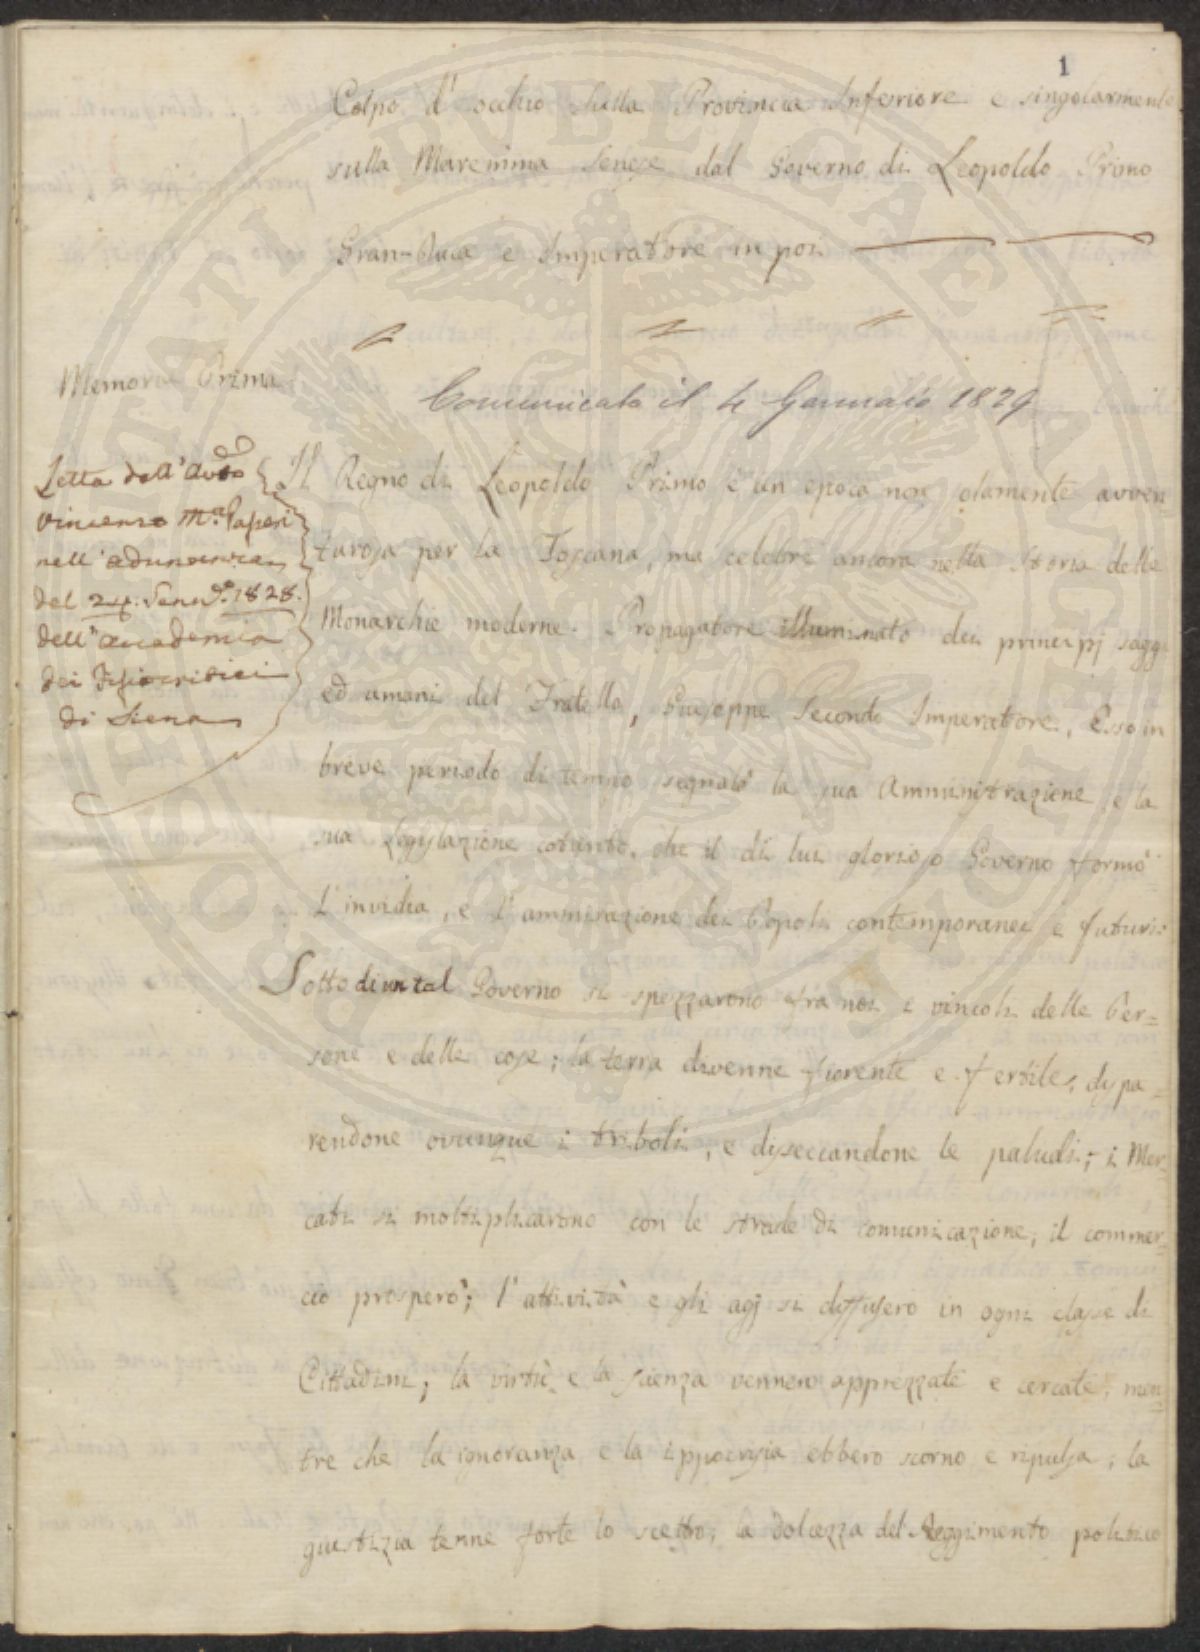 1
Colpo d'occhio sulla Provincia Inferiore e singolarmente
sulla Maremma Senese dal Governo di Leopoldo Primo
Gran-Duca e Imperatore in poi
Memoria Prima
Comunicata il 4 Gennaio 1829
Letta dall'Avv.to
Vincenzo M.a Paperi
nell'adunanza
del 24. Genn.o 1828.
dell'accademia
dei Fisiocritici
di Siena
Il Regno di Leopoldo Primo è un epoca non solamente avven
turosa per la Toscana, ma celebre ancora nella Storia delle
Monarchie moderne. Propagatore illuminato dei principj saggi
ed umani del Fratello, Giuseppe Secondo Imperatore, Esso in
breve periodo di tempo segnalò la sua Amministrazione e la
sua Legislazione cotanto, che il di lui glorioso Governo formò
l'invidia, e l'ammirazione dei Popoli contemporanei e futuri:
Sotto di un tal Governo si spezzarono fra noi i vincoli delle Per=
sone e delle cose; la terra divenne fiorente e fertile, dispa=
rendone ovunque i triboli, e disseccandone le paludi; i Mer=
cati si moltiplicarono con le strade di comunicazione, il commer=
cio prosperò; l'attività e gli agj si diffusero in ogni classe di
Cittadini; la virtù e la scienza vennero apprezzate e cercate, men=
tre che la ignoranza e la ippocrisia ebbero scorno e ripulsa; la
giustizia tenne forte lo scettro, la dolcezza del Reggimento politico